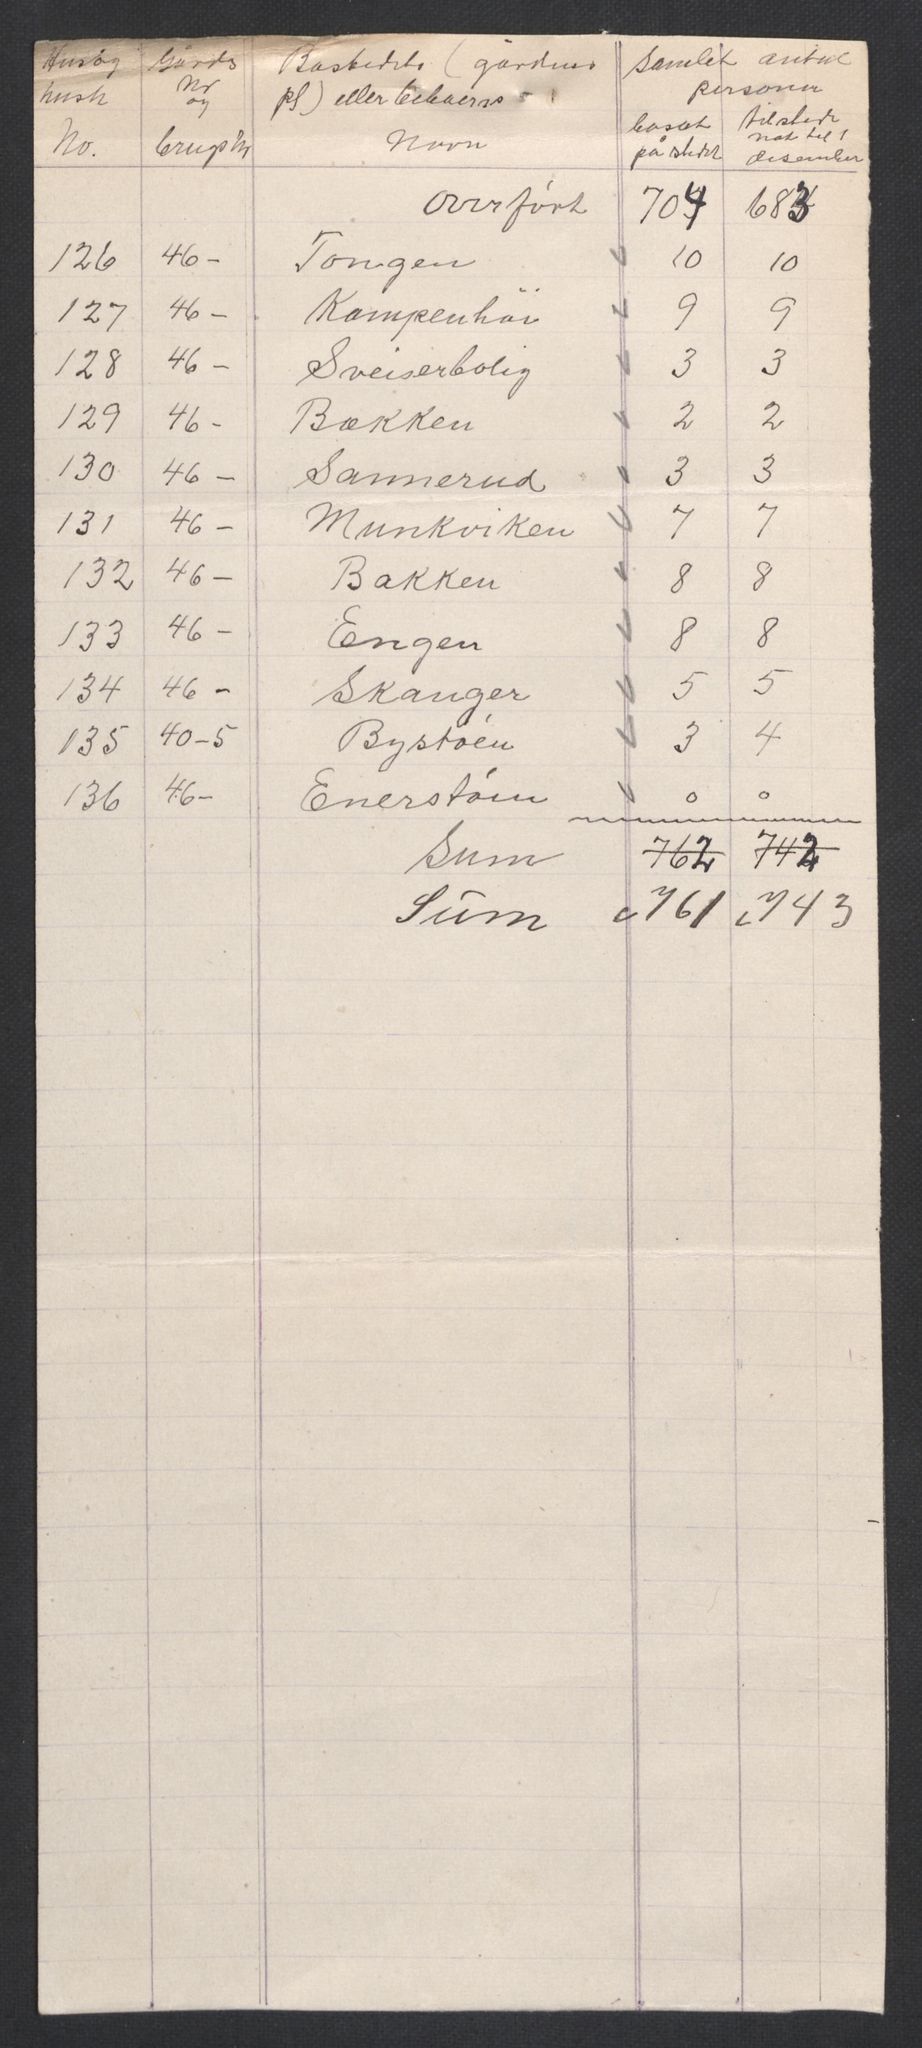 Hus og Gårds Bostedets (gårdens Samlet antal
hush Nr og pl) eller beboerens personer
No. brugs Nr Navn bosat på stedet tilstede nat til 1 desember
Overført 704 683
126 46- Tangen 10 10
127 46- Kampenhöi 9 9
128 46- Sveiserbolig 3 3
129 46- Bækken 2 2
130 46- Sannerud 3 3
131 46- Munkviken 7 7
132 46- Bakken 8 8
133 46- Engen 8 8
134 46- Skanger 5 5
135 40-5 Bystøen 3 4
136 46- Enerstöen 0 0
Sum 762 742
Sum 761 743